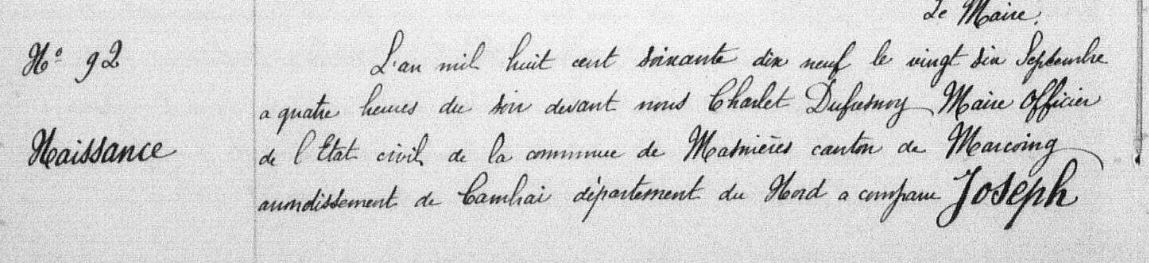 Le Maire.
N° 92
L'an mil huit cent soixante dix neuf le vingt six Septembre
a quatre heures du soir devant nous Charlet Dufresnoy Maire Officier
Naissance
de l'Etat civil de la commune de Masnières canton de Marcoing
arrondissement de Cambrai département du Nord a comparu Joseph